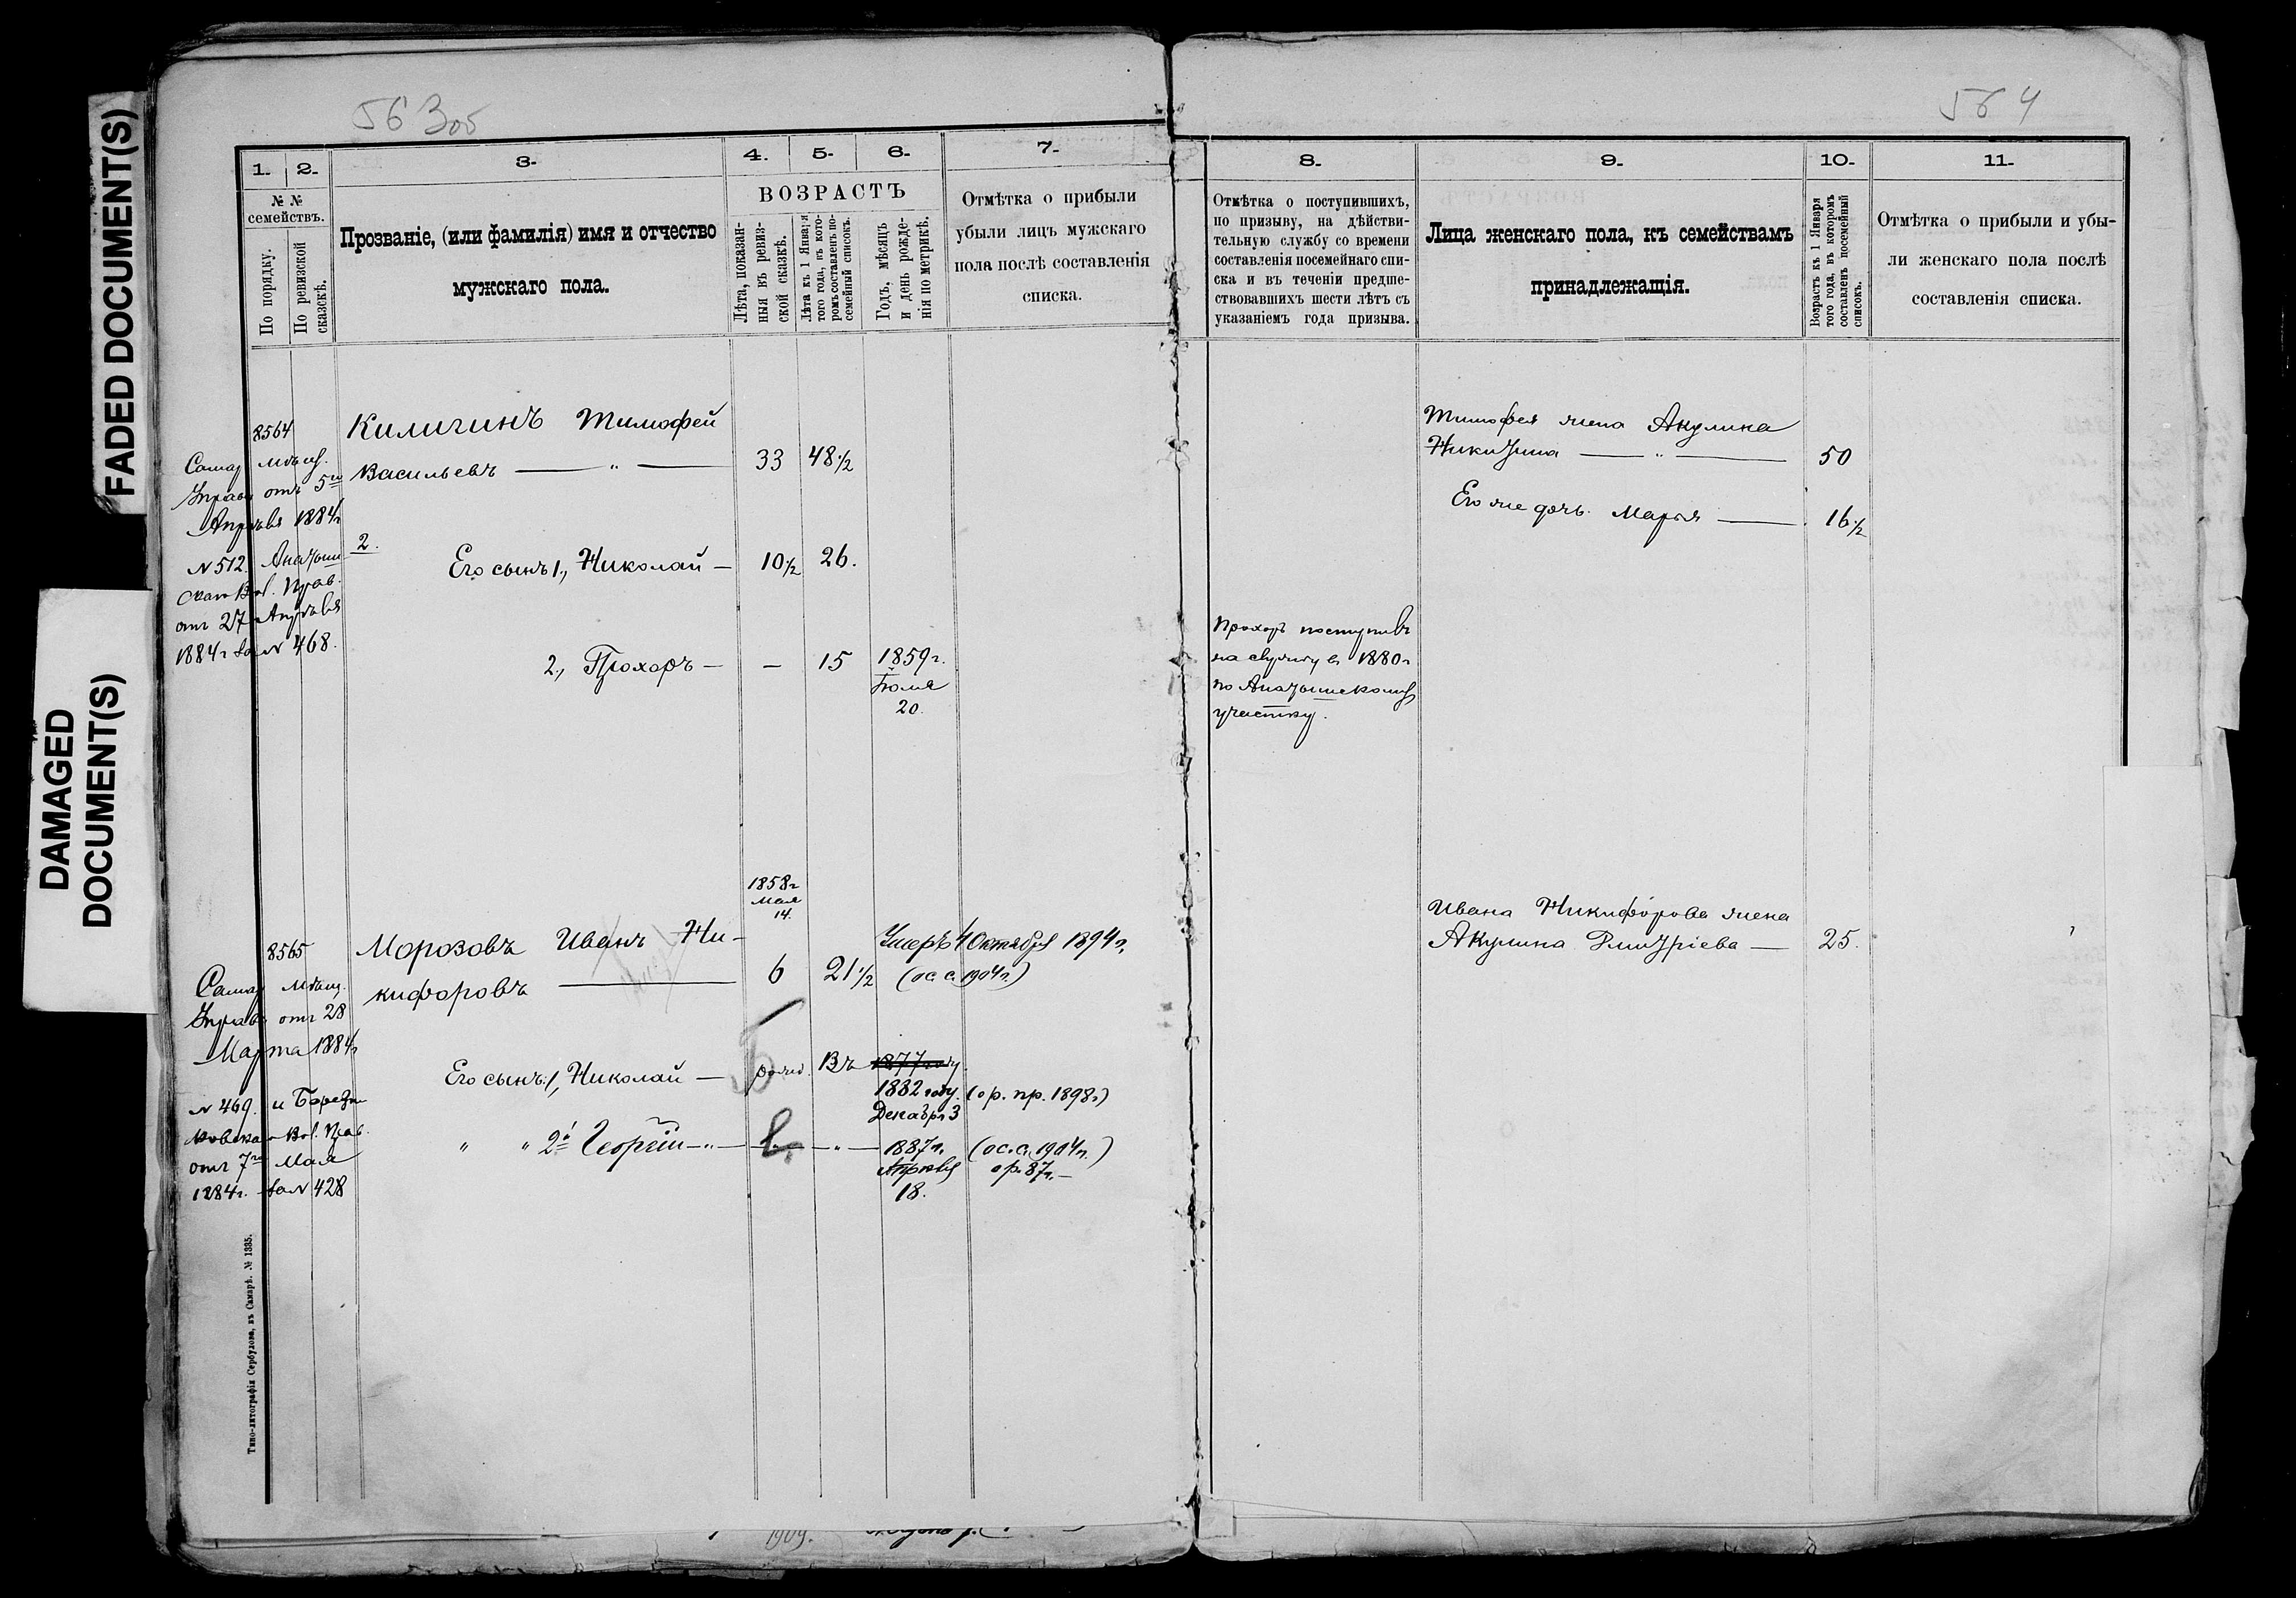 FADED DOCUMENT(S)
DAMAGED
DOCUMENT(S)
563об
1.
2.
3.
4.
5.
6.
7.
№ №
семействъ.
По порядку.
По ревизской
сказскѣ.
Прозваніе, (или фамилія) имя и отчество
мужскаго пола.
ВОЗРАСТЪ
Лѣта, показан-
ныя къ ревиз-
ской сказкѣ.
Лѣта къ 1 Января
того года, въ кото-
ромъ составленъ по-
семейный списокъ.
Годъ, мѣсяцъ
и день рожде-
нія по метрикѣ.
Отмѣтка о прибыли
убыли лицъ мужскаго
пола послѣ составленія
списка.
8564
Самар мѣщ.
Управы отъ 5го
Апрѣля 1884г
N 512.
скаго Вол. Прав.
отъ 27 Апрѣля
1884г за N 468.
2.
Киличинъ Тимофей
Васильевъ — " — 33 48 1/2
Его сынъ 1., Николай — 10 1/2 26.
2., Прохоръ — — 15 1859г.
Іюля
20.
1858г
Мая
14.
8565
Самар мѣщ.
Управы отъ 28
Марта 1884г
N 469. и
Вол. Прав.
отъ 7го Мая
1884г. за N 428
Морозовъ Иванъ Ни-
кифоровъ — 6 21 1/2
Умеръ 4 Октября 1894г.
(ос. с. 1904г.)
Его сынъ: 1, Николай — рожд. Въ 1877 году
1882 году. (ор. пр. 1898г)
Декабря 3
" " 2й Георгій — " — " — 1887г. (ос. с. 1904г.)
Апрѣля ор. 87г. —
18.
Типо-литографія Сербулова, въ Самарѣ. № 1335.
1909.
564
8.
9.
10.
11.
Отмѣтка о поступившихъ,
по призыву, на дѣйстви-
тельную службу со времени
составленія посемейнаго спи-
ска и въ теченіи предше-
ствовавшихъ шести лѣтъ съ
указаніемъ года призыва.
Лица женскаго пола, къ семействамъ
принадлежащія.
Возрастъ къ 1 Января
того года, въ которомъ
составленъ посемейный
списокъ.
Отмѣтка о прибыли и убы-
ли женскаго пола послѣ
составленія списка.
Тимофея жена Акулина
Никитина — " — 50
Его же дочь. Марья — 16 1/2
Прохоръ поступилъ
на службу въ 1880г
по
участку.
Ивана Никифорова жена
Акулина Дмитріева — 25.